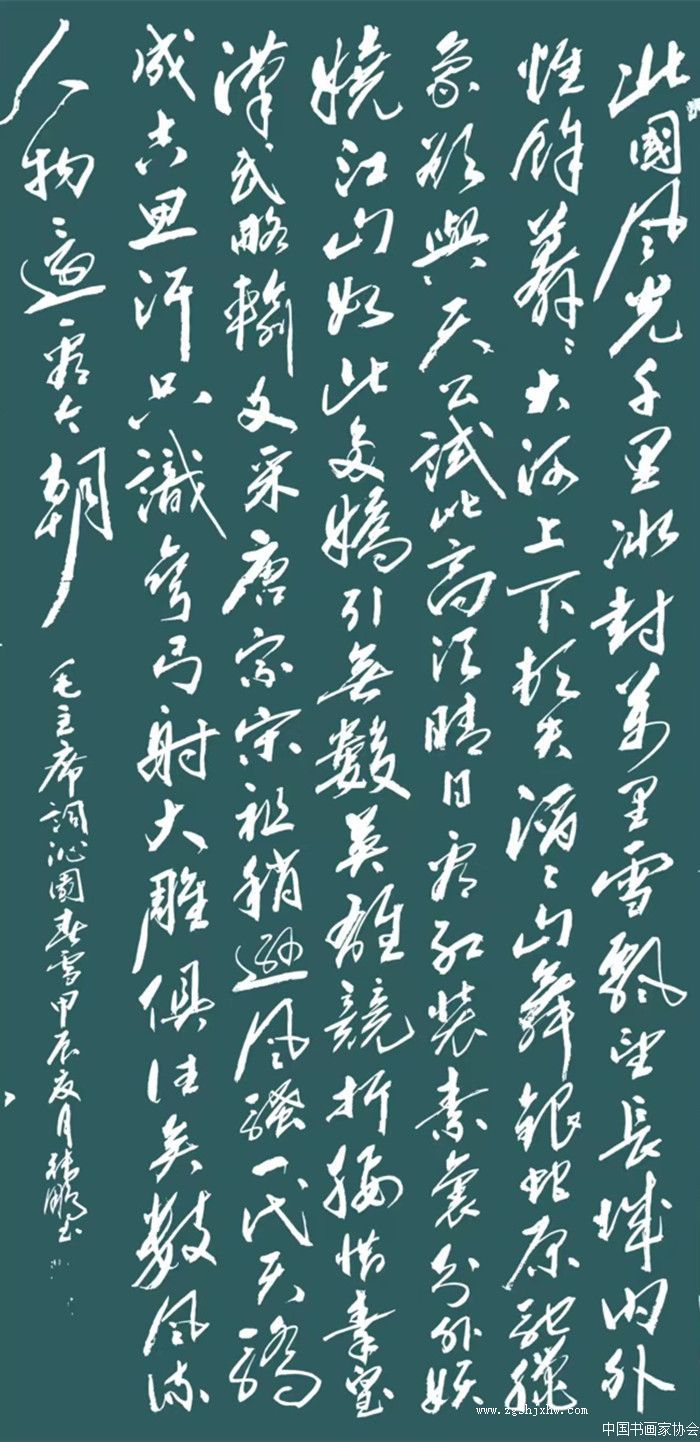 北國风光千里冰封万里雪飘望長城内外
惟餘莽〻大河上下顿失滔〻山舞銀蛇原驰蠟
象欲與天公試比高须晴日看红装素裹分外妖
嬈江山如此多嬌引無數英雄競折腰惜秦皇
漢武略輸文采唐宗宋祖稍逊风骚一代天驕
成吉思汗只識弯弓射大雕俱往矣數风流
人物還看今朝
毛主席詞沁園春雪甲辰夏月張鹏书
www.zgshjxhw.com
中国书画家协会